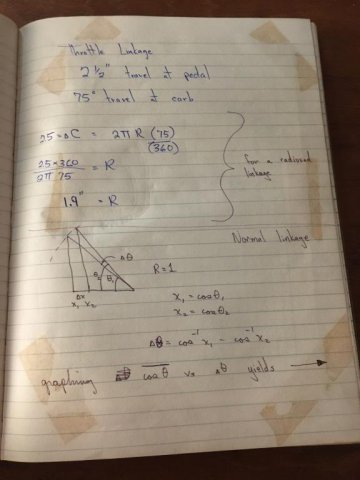 Throttle Linkage
2 ½" travel at pedal
75° travel at carb
2.5 = ΔC = 2π R (75)
(360)
2.5 × 360 = R
2π 75
1.9" = R
for a radiused
linkage
Normal linkage
Δθ
θ₂ θ₁
R = 1
Δx
x₁ x₂
x₁ = cosθ₁
x₂ = cosθ₂
Δθ = cos⁻¹ x₁ - cos⁻¹ x₂
graphing cosθ vs Δθ yields →